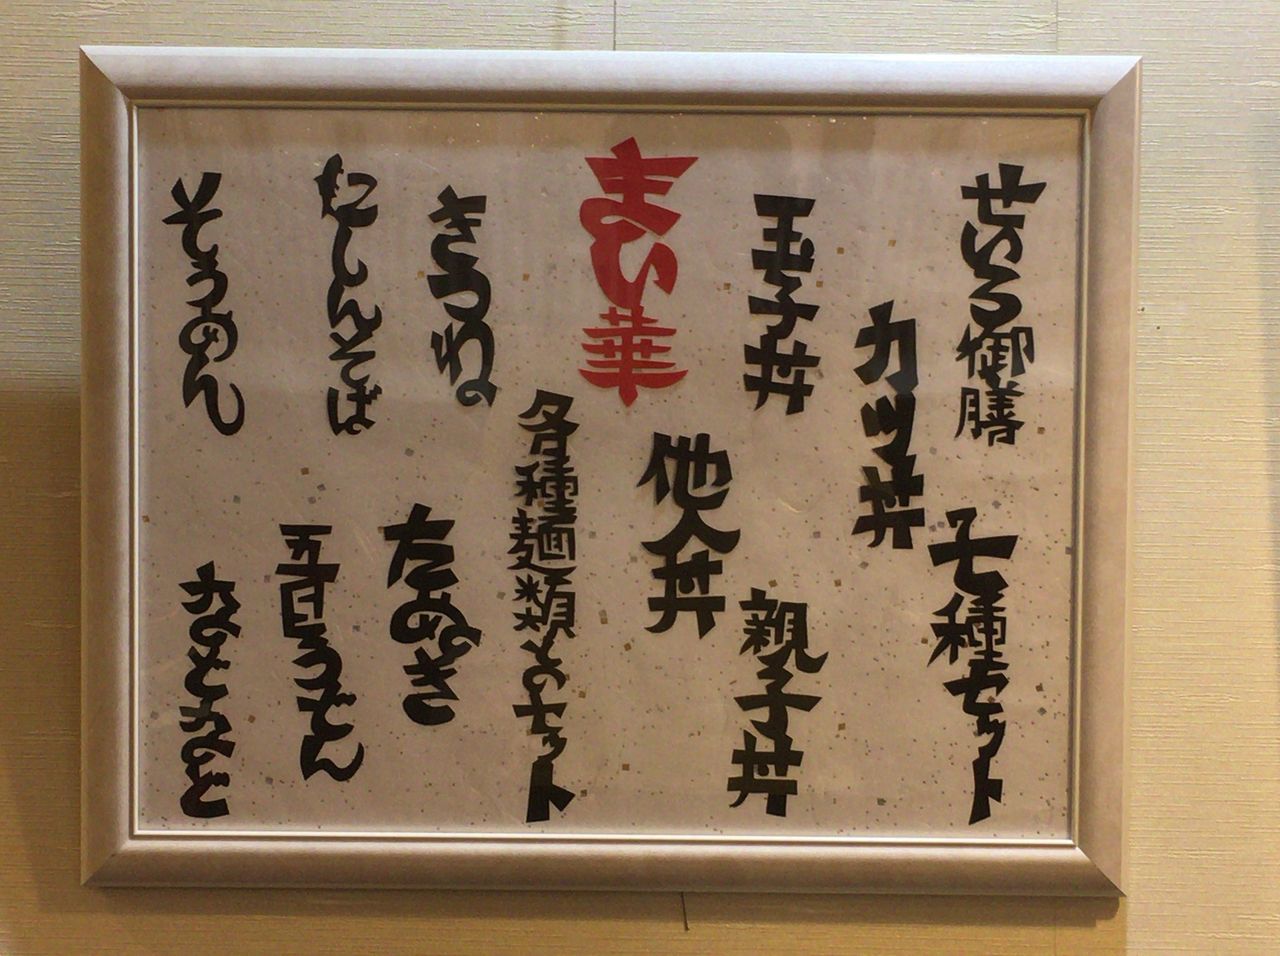 せいろ御膳
七種セット
カツ丼
玉子丼
親子丼
他人丼
まい華
各種麺類とのセット
きつね
たぬき
にしんそば
五目うどん
そうめん
などなど